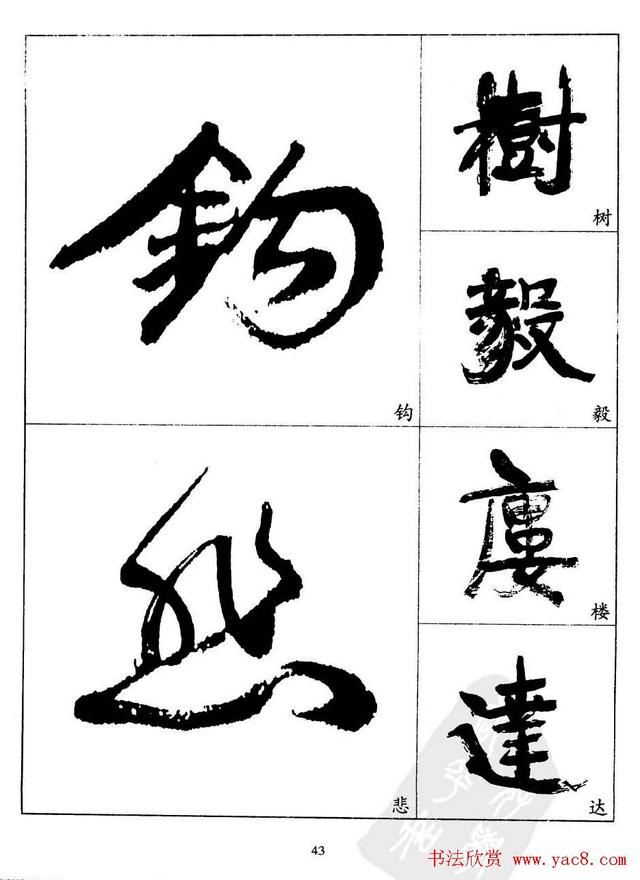 鈎
钩
樹
树
毅
毅
廔
楼
悲
悲
達
达
43
书法欣赏 www.yac8.com